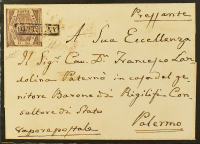 Pressante
A Sua Eccellenza
Il Sigr. Cav. Dn. Francesco Lan=
dolina Paternò in casa del ge=
nitore Barone di Rigilifi Con=
sultore di Stato
Palermo
Vapore postale